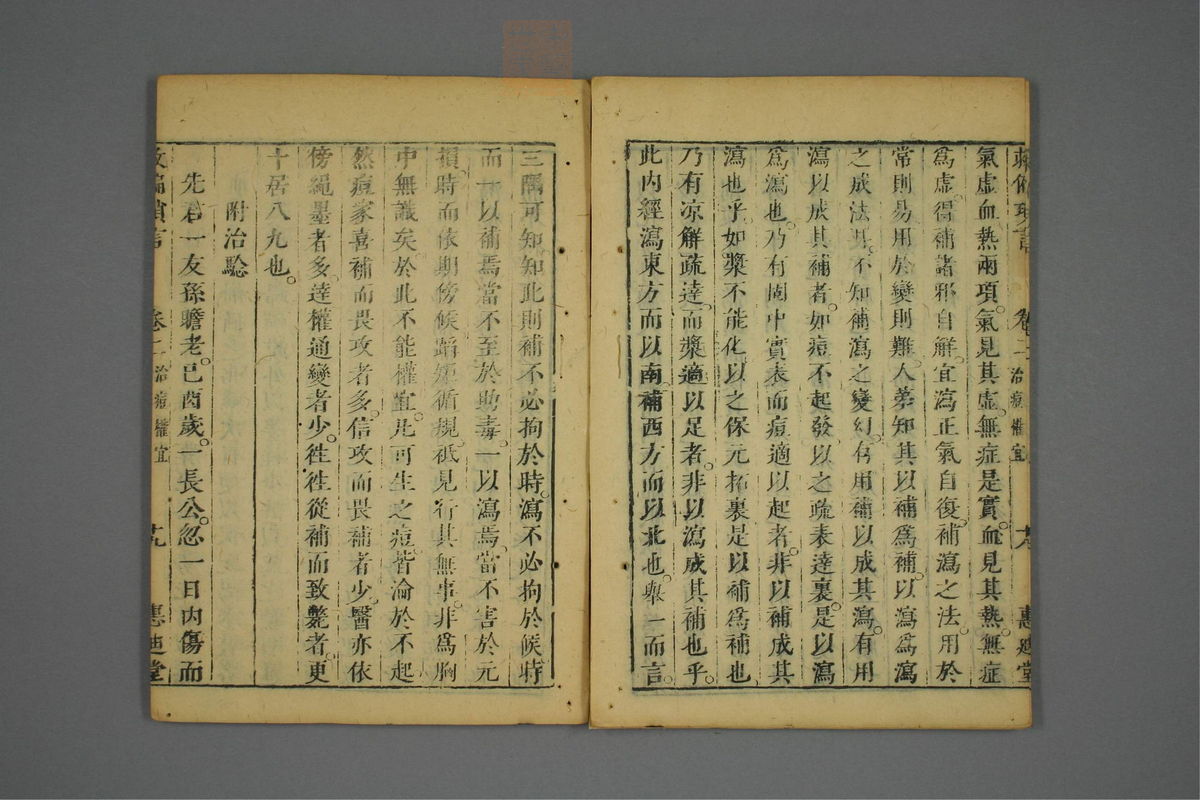 氣虛血熱兩項。氣見其虛。無症是實。血見其熱。無症
爲虛。得補諸邪自解。宜瀉正氣自復。補瀉之法。用於
常則易。用於變則難。人第知其以補爲補。以瀉爲瀉
之成法。不知補瀉之變幻。有用補以成其瀉。有用
瀉以成其補者。如痘不起發。以之疏表達裏。是以瀉
爲瀉也。乃有固中實表而痘適以起者。非以補成其
瀉也乎。如漿不能化。以之保元拓裏。是以補爲補也。
乃有凉解疏達。而漿適以足者。非以瀉成其補也乎。
此內經瀉東方而以南。補西方而以北也。舉一而言。
三隅可知。知此則補不必拘於時。瀉不必拘於候。時
而一以補焉。當不至於助毒。一以瀉焉。當不害於元
損。時而依期傍候。蹈矩循規。祇見行其無事。非爲胸
中無識矣。於此不能權宜。凡可生之痘。皆淪於不起。
然痘家喜補而畏攻者多。信攻而畏補者少。醫亦依
傍繩墨者多。達權通變者少。徃徃從補而致斃者。更
十居八九也。
附治驗
先君一友孫瞻老。己酉歲。一長公。忽一日內傷而
卷二 治痘權宜 十九 惠迪堂